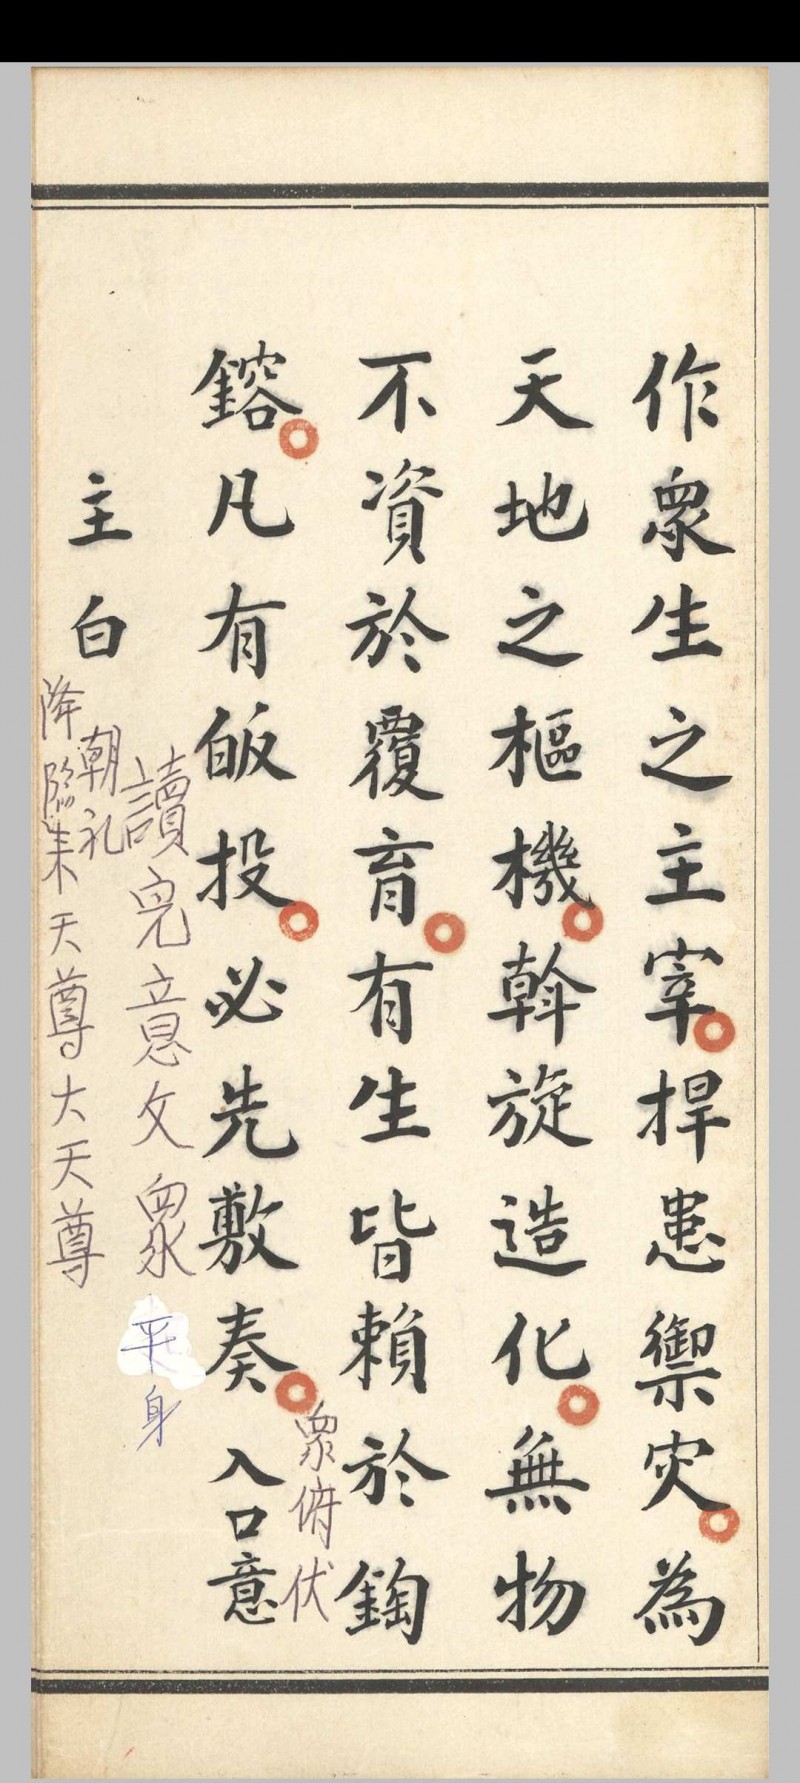 作衆生之主宰捍患禦灾為
天地之樞機斡旋造化無物
不資於覆育有生皆賴於鋾
鎔凡有皈投必先敷奏入口意
衆俯伏
主白
讀完意文衆平身
朝礼
降臨来天尊大天尊